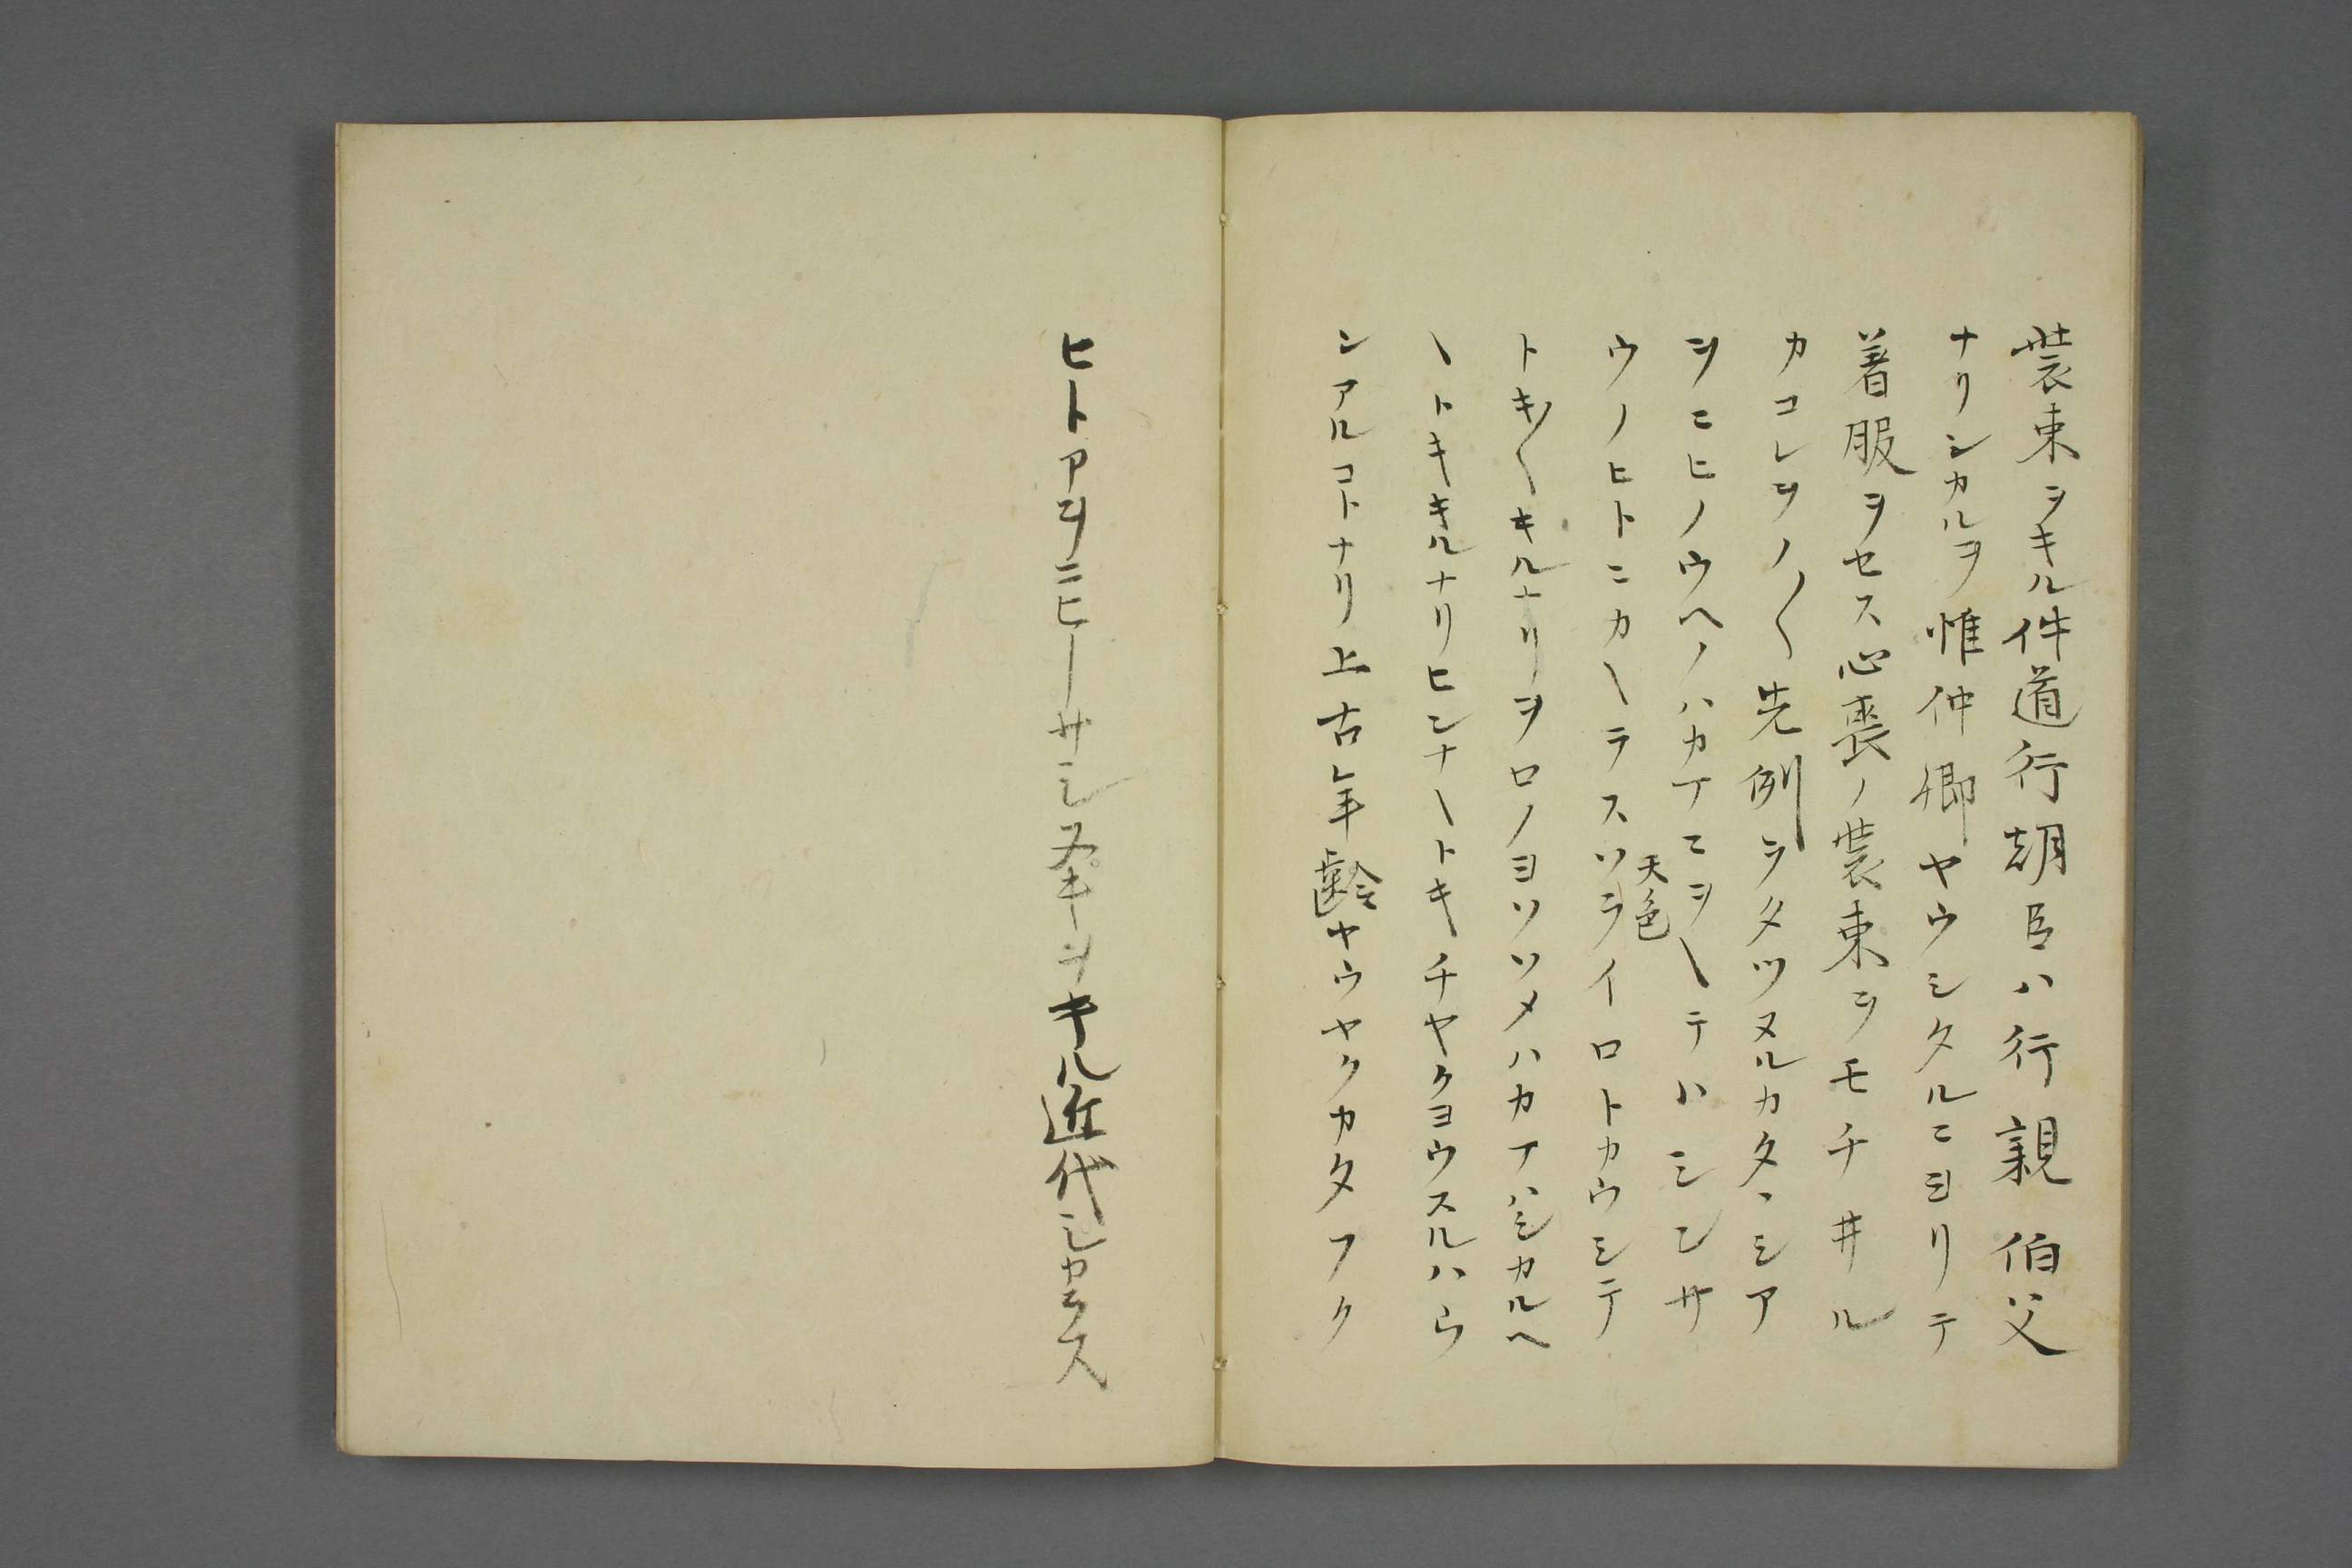 装束ヲキル件道行朝臣ハ行親伯父
ナリシカルヲ惟仲卿ヤウシタルニヨリテ
着服ヲセス心喪ノ装束ヲモチ井ル
カコレヲノ〱先例ヲタツヌルカタヽシア
ヲニヒノウヘノハカマニヲヽテハシンサ
ウノヒトニカヽラスソライロトカウシテ
天色
トキ〱キルナリヲロノヨソソメハカマハシカルヘ
ヽトキキルナリヒンナヽトキチヤクヨウスルハウ
ンアルコトナリ上古年齢ヤウヤクカタフク
ヒトアヲニヒーサシヌキヲキル近代シカラス